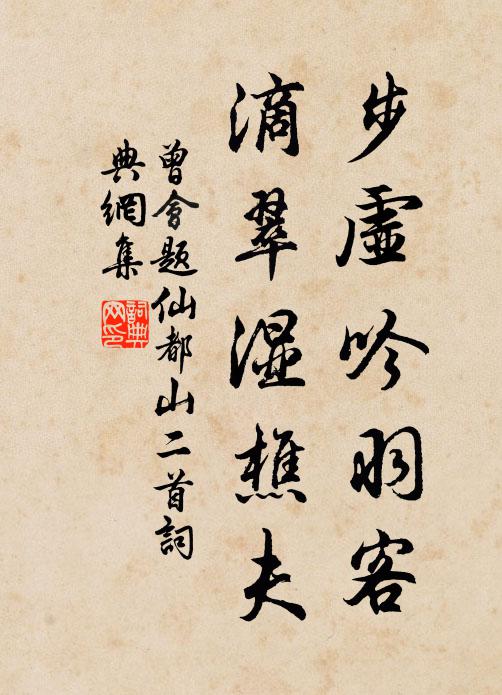 步虛吟羽客
滴翠濕樵夫
曾會題仙都山二首詞
典網集
詞典網印